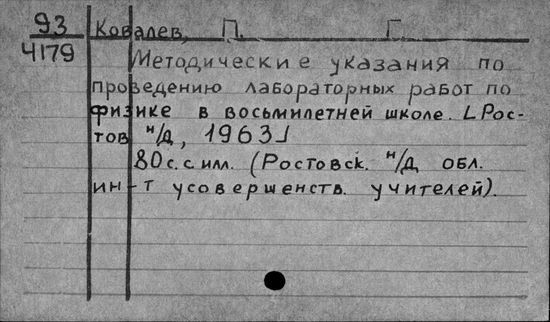 93
4179
Ковалев, П. Г.
Методические указания по
проведению лабораторных работ по
физике в восьмилетней школе. [Рос-
тов н/Д, 1963]
80 с. с илл. (Ростовск. н/Д обл.
ин-т усовершенств. учителей).